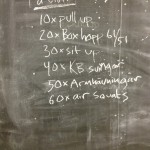 10x pull up
20x Box hopp 61/51
30x sit up
40x KB
50x
60x air squats